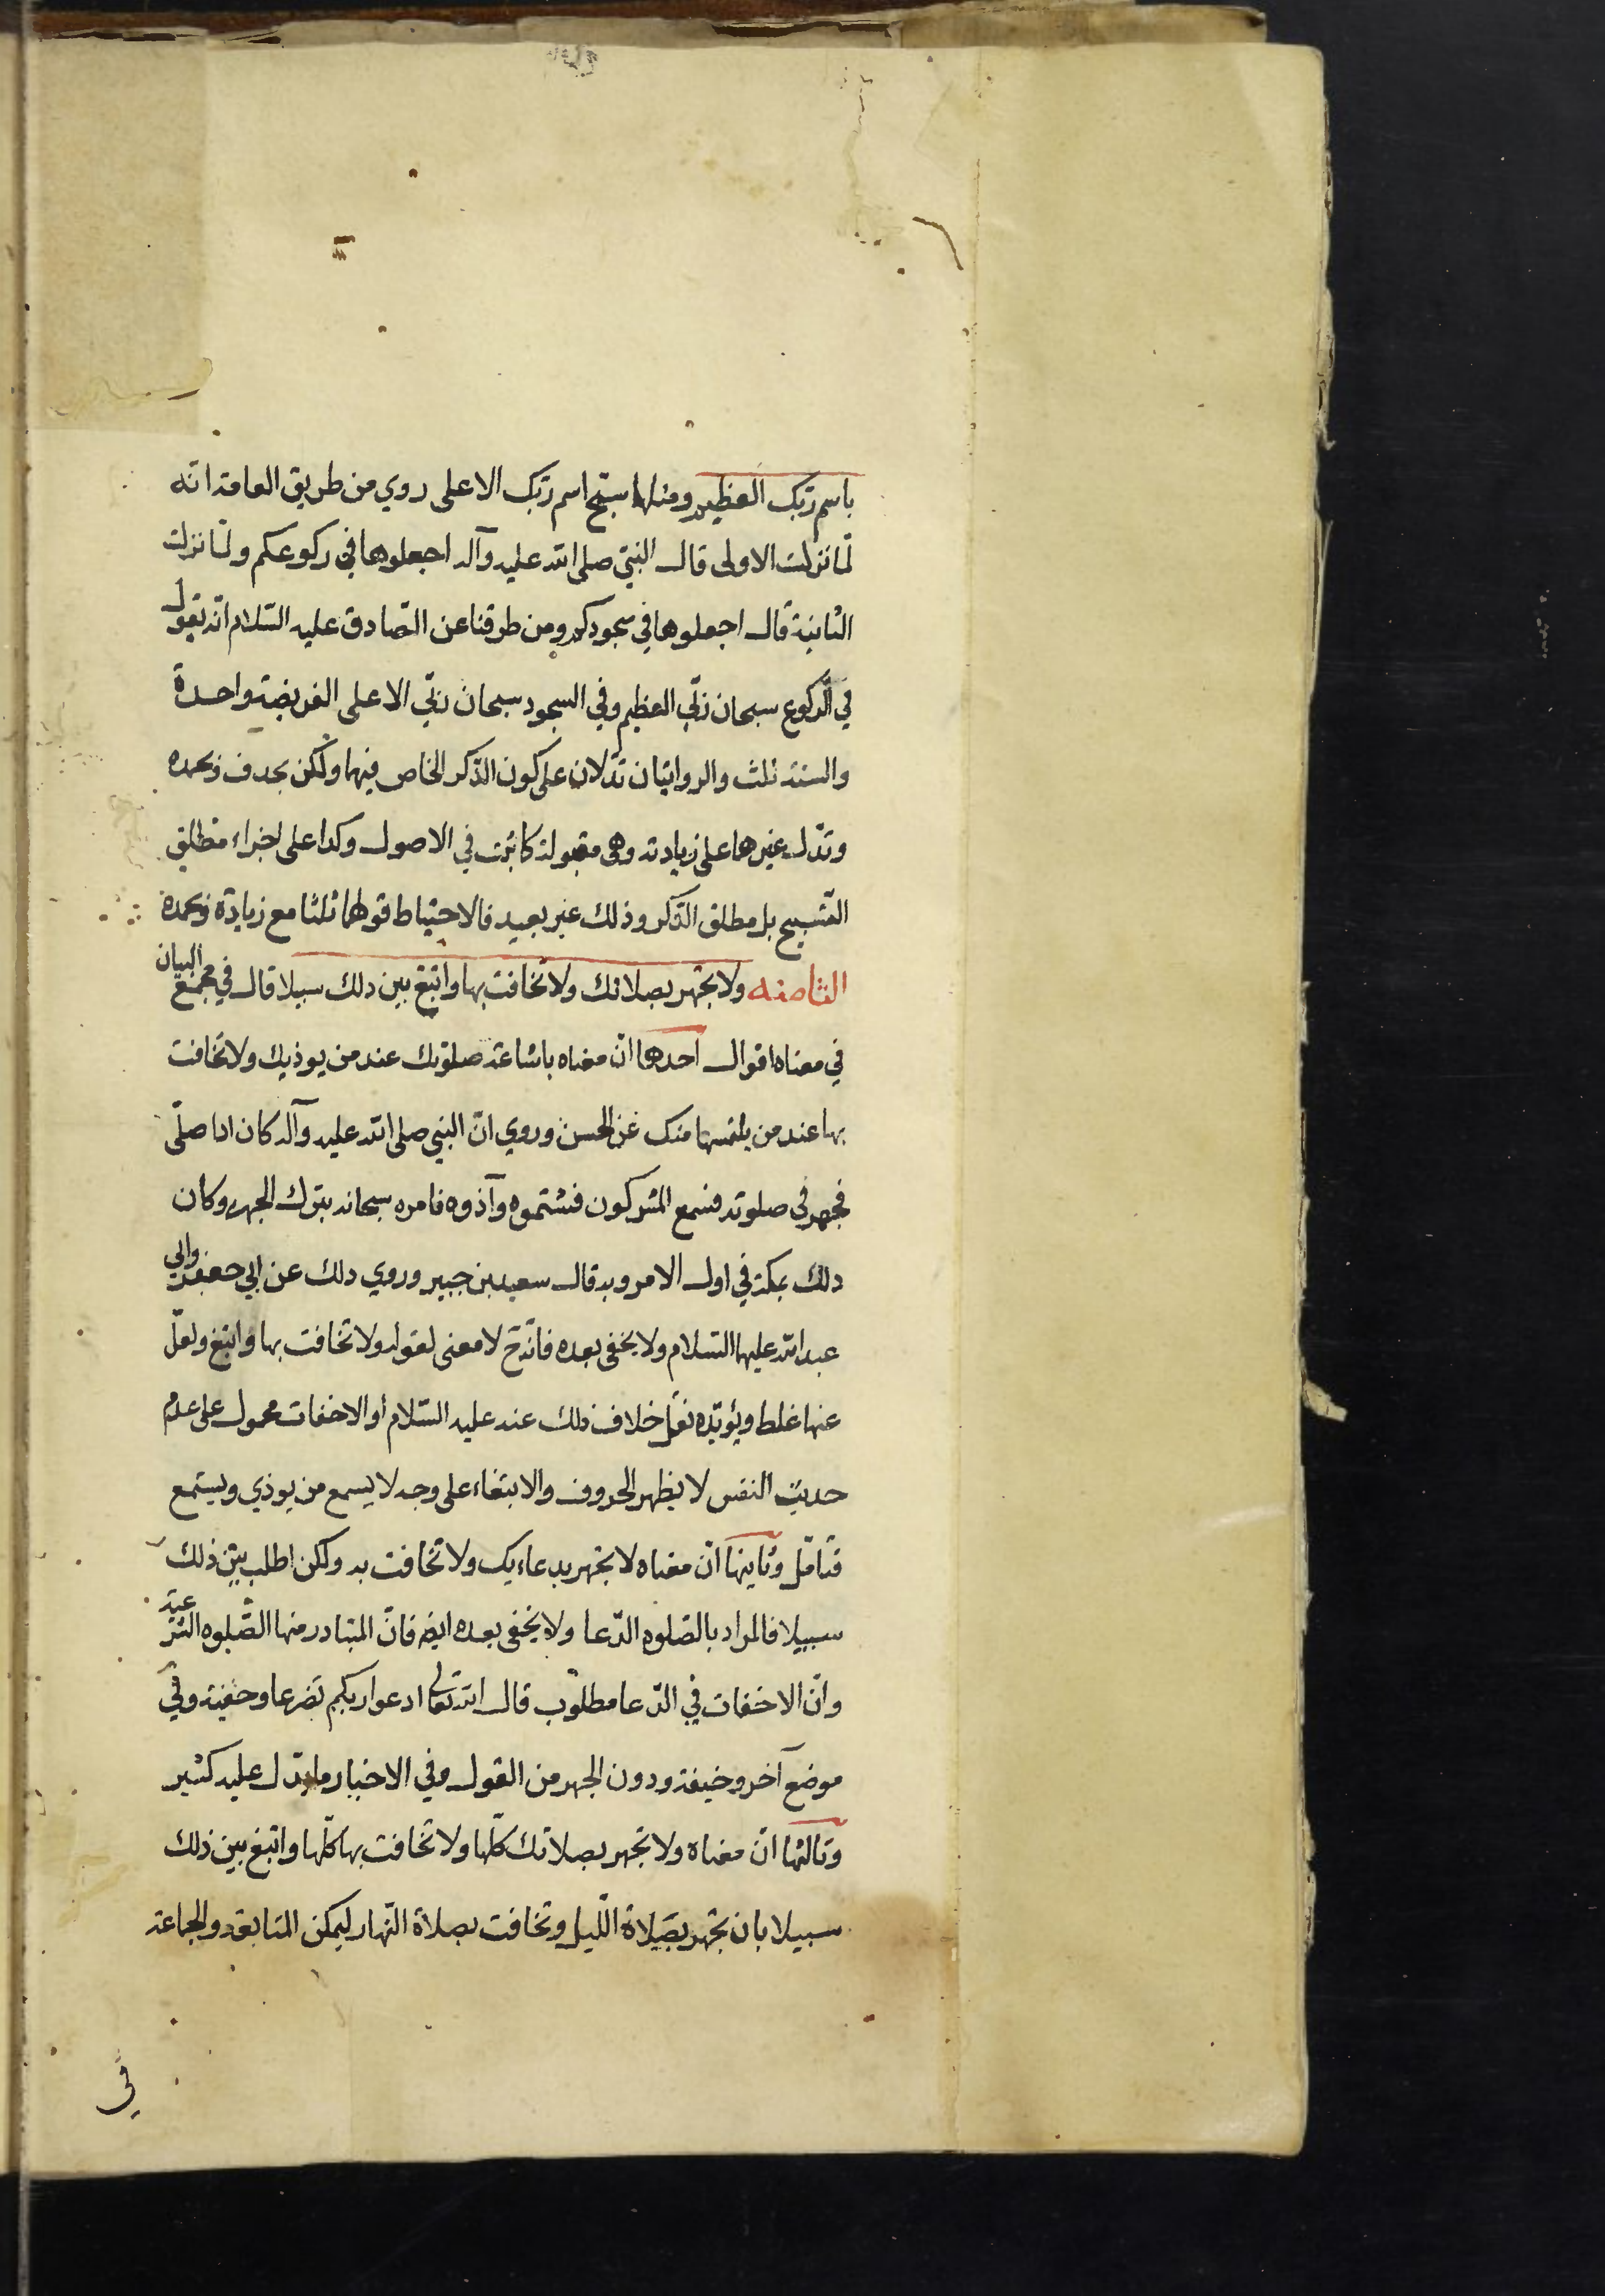 باسم ربّك العظيم ومنها سبّح اسم ربّك الاعلى روي من طريق العامة انّه
لمّا نزلت الاولى قال النبيّ صلى الله عليه وآله اجعلوها في ركوعكم ولمّا نزلت
الثانية قال اجعلوها في سجودكم ومن طرقنا عن الصّادق عليه السّلام انّه يقول
في الرّكوع سبحان ربّي العظيم وفي السجود سبحان ربّي الاعلى الفريضة واحدة
والسنة ثلث والروايتان تدّلان على كون الذّكر الخاص فيهما ولكن بحذف وبحمده
وتدّل غيرهما على زيادته وهي مقبولة كما ثبت في الاصول وكذا على اجزاء مطلق
التّسبيح بل مطلق الذّكر وذلك غير بعيد فالاحتياط قولهما ثلثا مع زيادة وبحمده
الثامنه ولا تجهر بصلاتك ولا تخافت بها وابتغ بين ذلك سبيلا قال في مجمع البيان
في معناه اقوال احدها انّ معناه باشاعة صلوتك عند من يوذيك ولا تخافت
بها عند من يلتمسها منك عن الحسن وروي انّ النبي صلى الله عليه وآله كان اذا صلّى
فجهر في صلوته فسمع المشركون فشتموه وآذوه فامره سبحانه بترك الجهر وكان
ذلك بمكة في اول الامر وبه قال سعيد بن جبير وروي ذلك عن ابي جعفر وابي
عبد الله عليهما السّلام ولا يخفى بعده فانّه ح لا معنى لقوله ولا تخافت بها وابتغ ولعلّ
عنها غلط ويؤيّده نقل خلاف ذلك عنه عليه السّلام أو الاخفات محمول على عدم
حديث النفس لا يظهر الحروف والابتغاء على وجه لا يسمع من يوذي ويستمع
فتامّل وثانيها انّ معناه لا تجهر بدعاءيك ولا تخافت به ولكن اطلب بين ذلك
سبيلا فالمراد بالصّلوه الدّعا ولا يخفى بعده ايضا فانّ المتبادر منها الصّلوه الشرعية
وانّ الاخفات في الدّعا مطلوب قال الله تعالى ادعوا ربكم تضرعا وخفية وفي
موضع آخر وخيفة ودون الجهر من القول وفي الاخبار ما يدّل عليه كثير
وثالثها انّ معناه ولا تجهر بصلاتك كلّها ولا تخافت بها كلّها وابتغ بين ذلك
سبيلا بان تجهر بصلاة اللّيل وتخافت بصلاة النّهار ليمكن المتابعة والجماعة
في